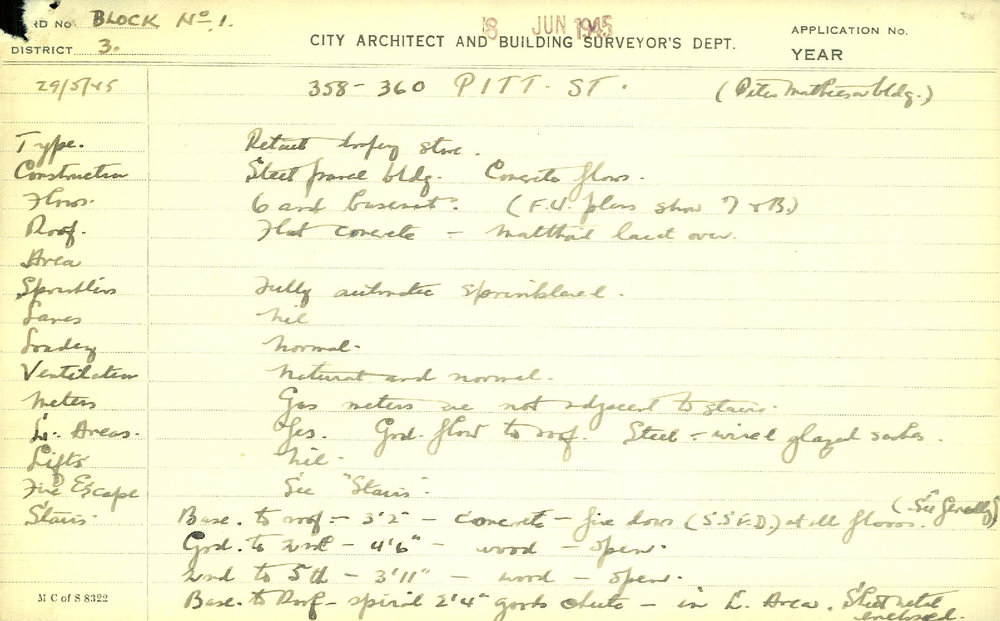 RD No BLOCK No. 1. 18 JUN 1945 APPLICATION No.
DISTRICT 3. CITY ARCHITECT AND BUILDING SURVEYOR'S DEPT. YEAR
29/5/45 358-360 PITT. ST. (Peter Mathieson bldg.)
Type. Retail store.
Construction Steel frame bldg. Concrete floors.
Floors. 6 and basemt. (F.U. plans show 7 & B.)
Roof. Flat concrete - Malthoid laid over.
Area
Sprinklers Fully automatic sprinklered.
Lanes Nil
Loading Normal.
Ventilation Natural and normal.
Meters Gas meters are not adjacent to stairs.
L. Areas. Yes. Grd. floor to roof. Steel - wired glazed sashes.
Lifts Nil.
Fire Escape See "Stairs".
Stairs. Base. to roof - 3'2" - concrete - fire doors (S.S.F.D.) at all floors. (See Generally)
Grd. to 2nd - 4'6" - wood - open.
2nd to 5th - 3'11" - wood - open.
Base. to Roof - spiral 2'4" goods chute - in L. Area. Sheet metal
enclosed.
M C of S 8322